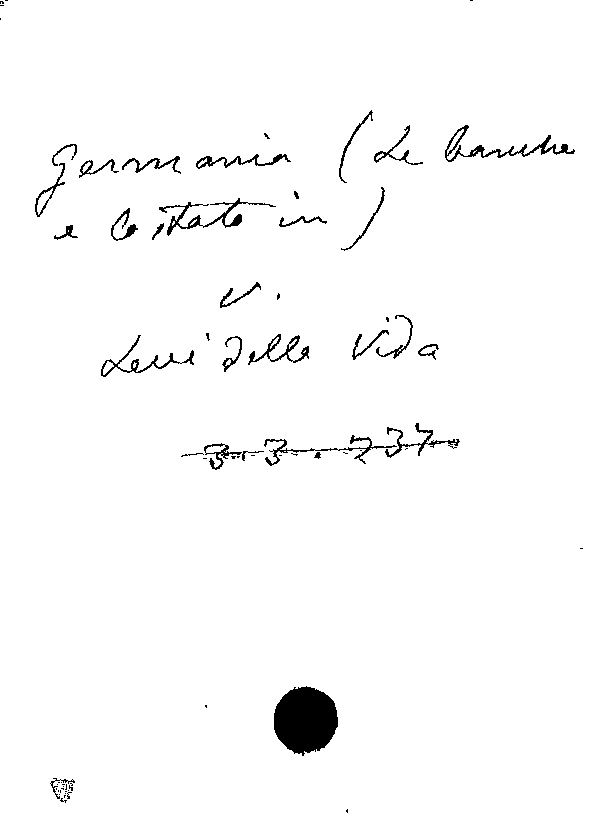 Germania (Le banche
e lo stato in)
V.
Levi della Vida
3.3.737